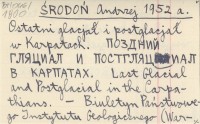 ŚRODOŃ Andrzej 1952 a.
Ostatni glacjał i postglacjał
w Karpatach. ПОЗДНИЙ
ГЛЯЦИАЛ И ПОСТГЛЯЦИАЛ
В КАРПАТАХ. Last Glacial
and Postglacial in the Carpa-
thians. - Biuletyn Państwowe-
go Instytutu Geologicznego (War-